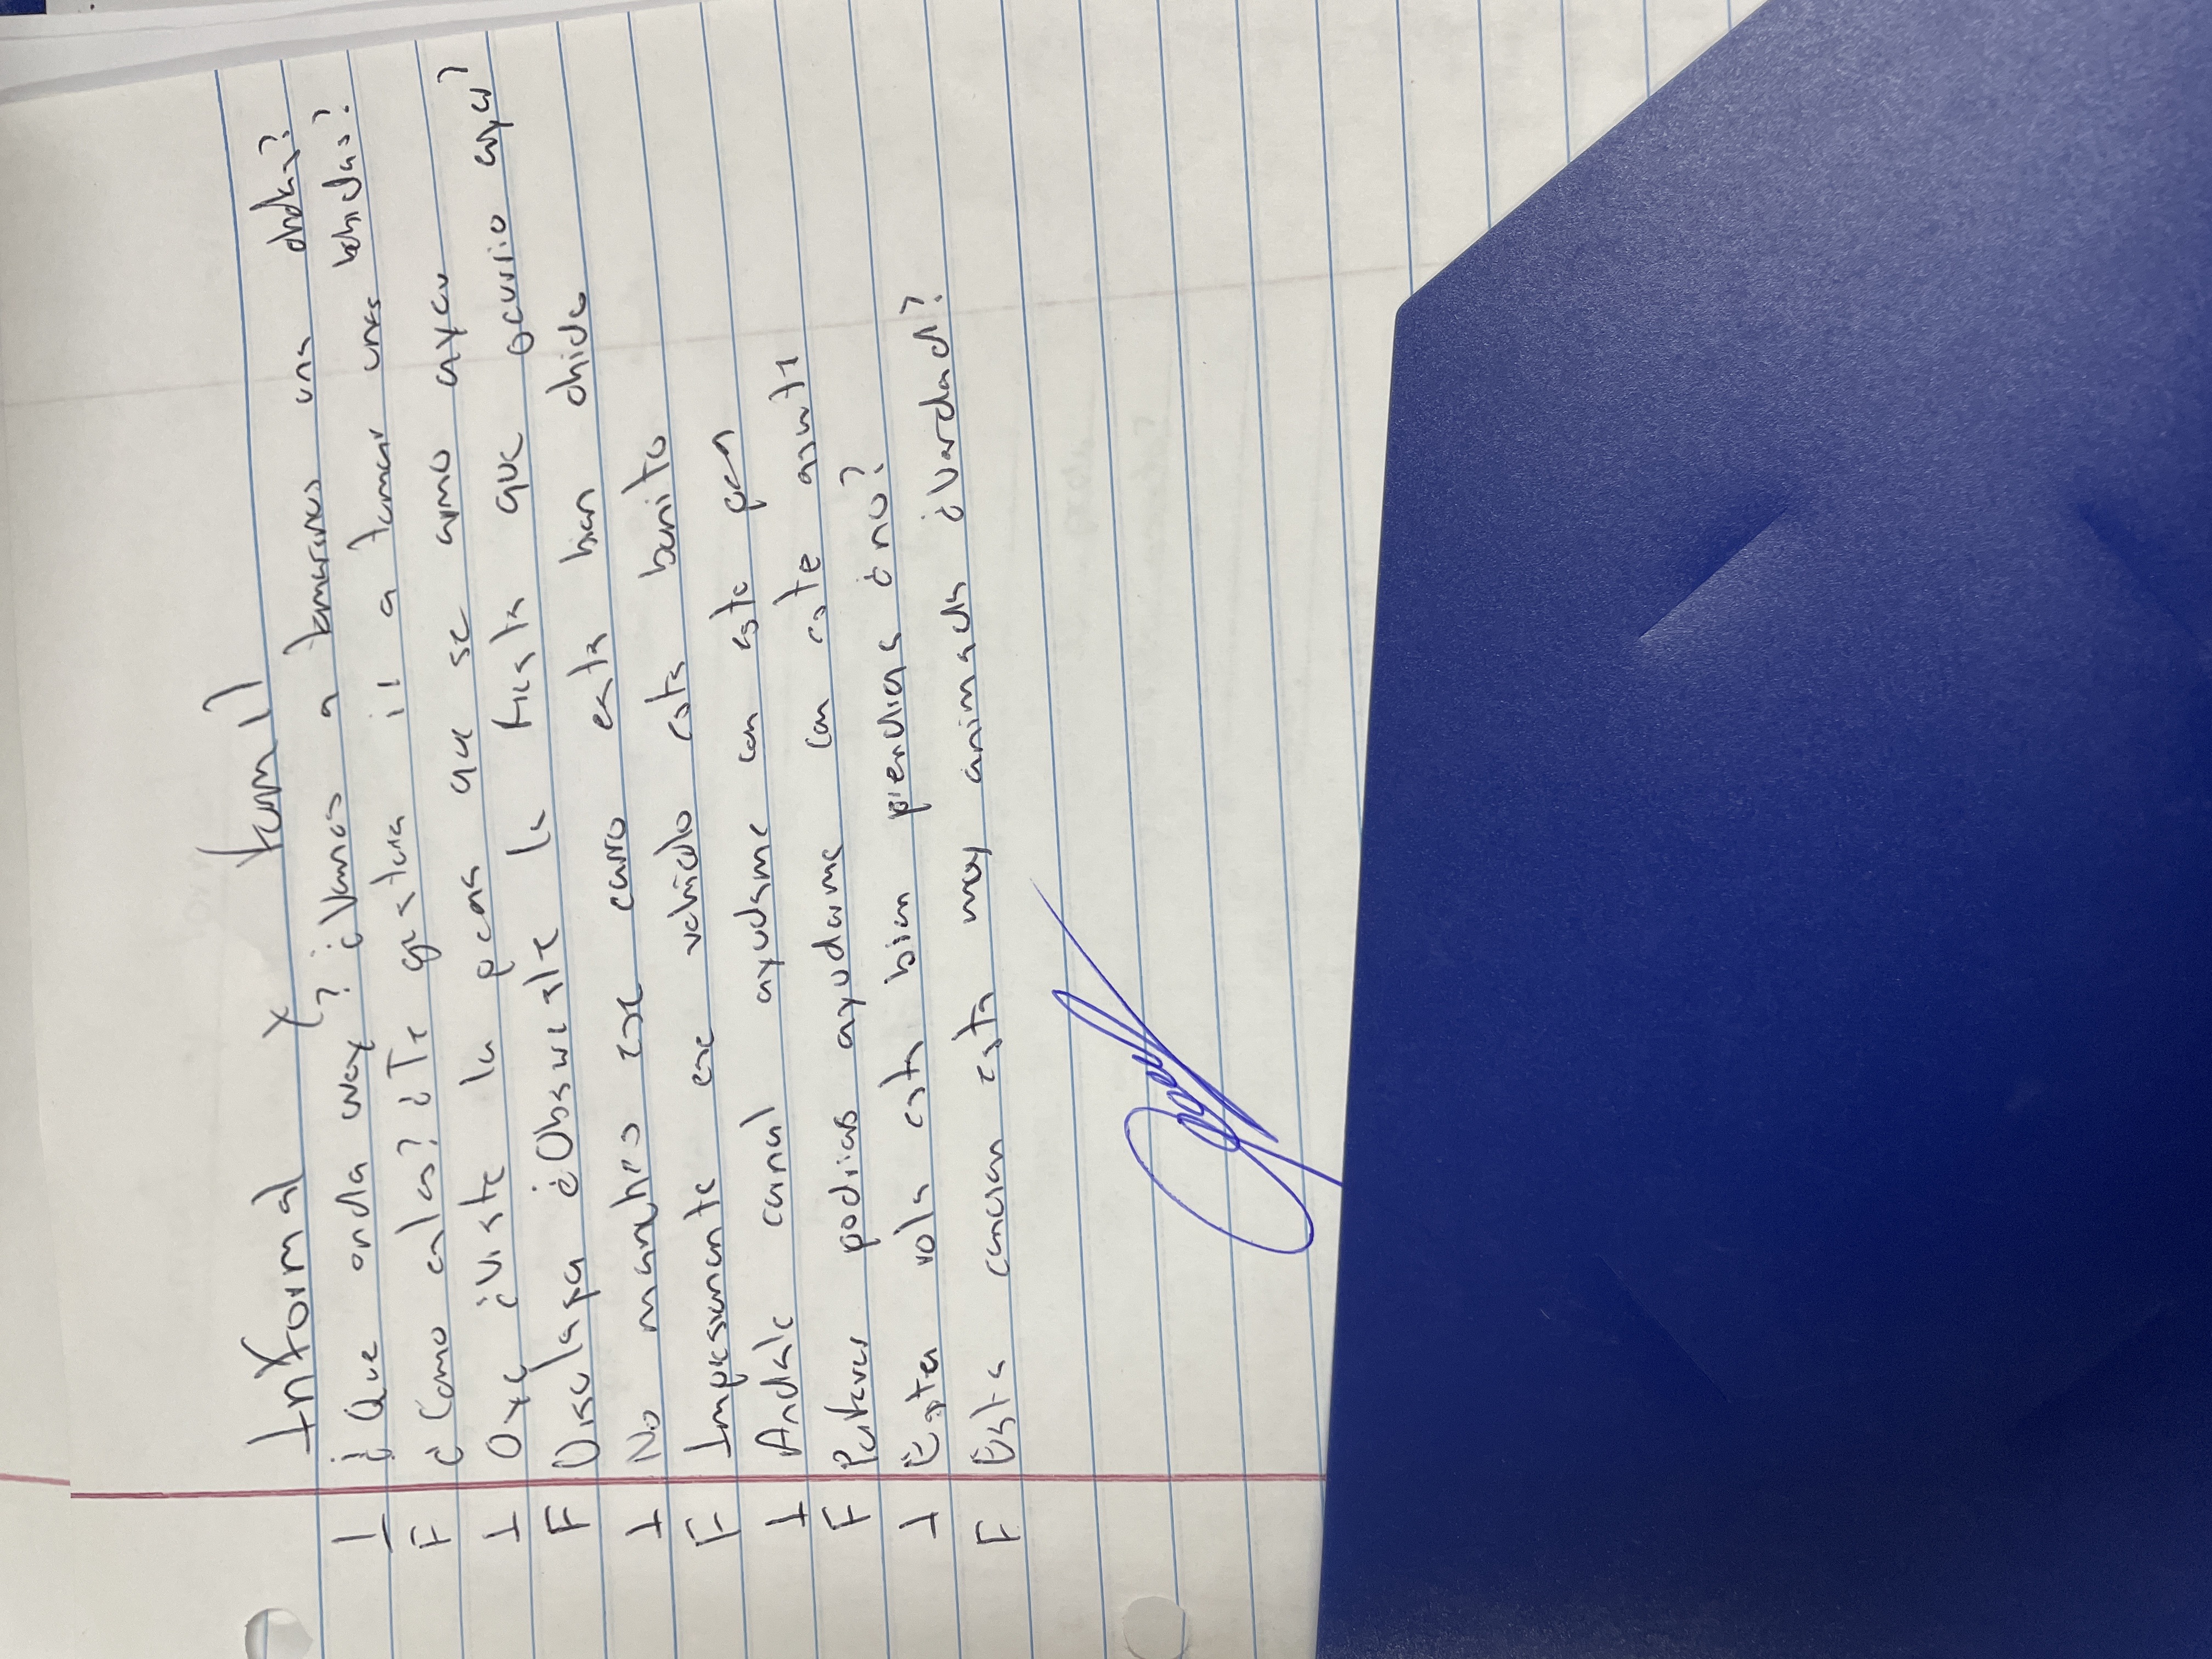 Informal y formal
I ¿Que onda wey? ¿Vamos a tomarnos una chelas?
F ¿Como estas? ¿Te gustaria ir a tomar unas bebidas?
I Oye ¿Viste la peda que se armo ayer
F Disculapa ¿Observaste la fiesta que ocurrio ayer?
I No manches ese carro esta bien chido
F Impresionante ese vehiculo esta bonito
I Andale carnal ayudame con este pen
F Porfavor podrias ayudarme con este asunto
I Esta rola esta bien prendida ¿no?
F Esta cancion esta muy animada ¿Verdad?